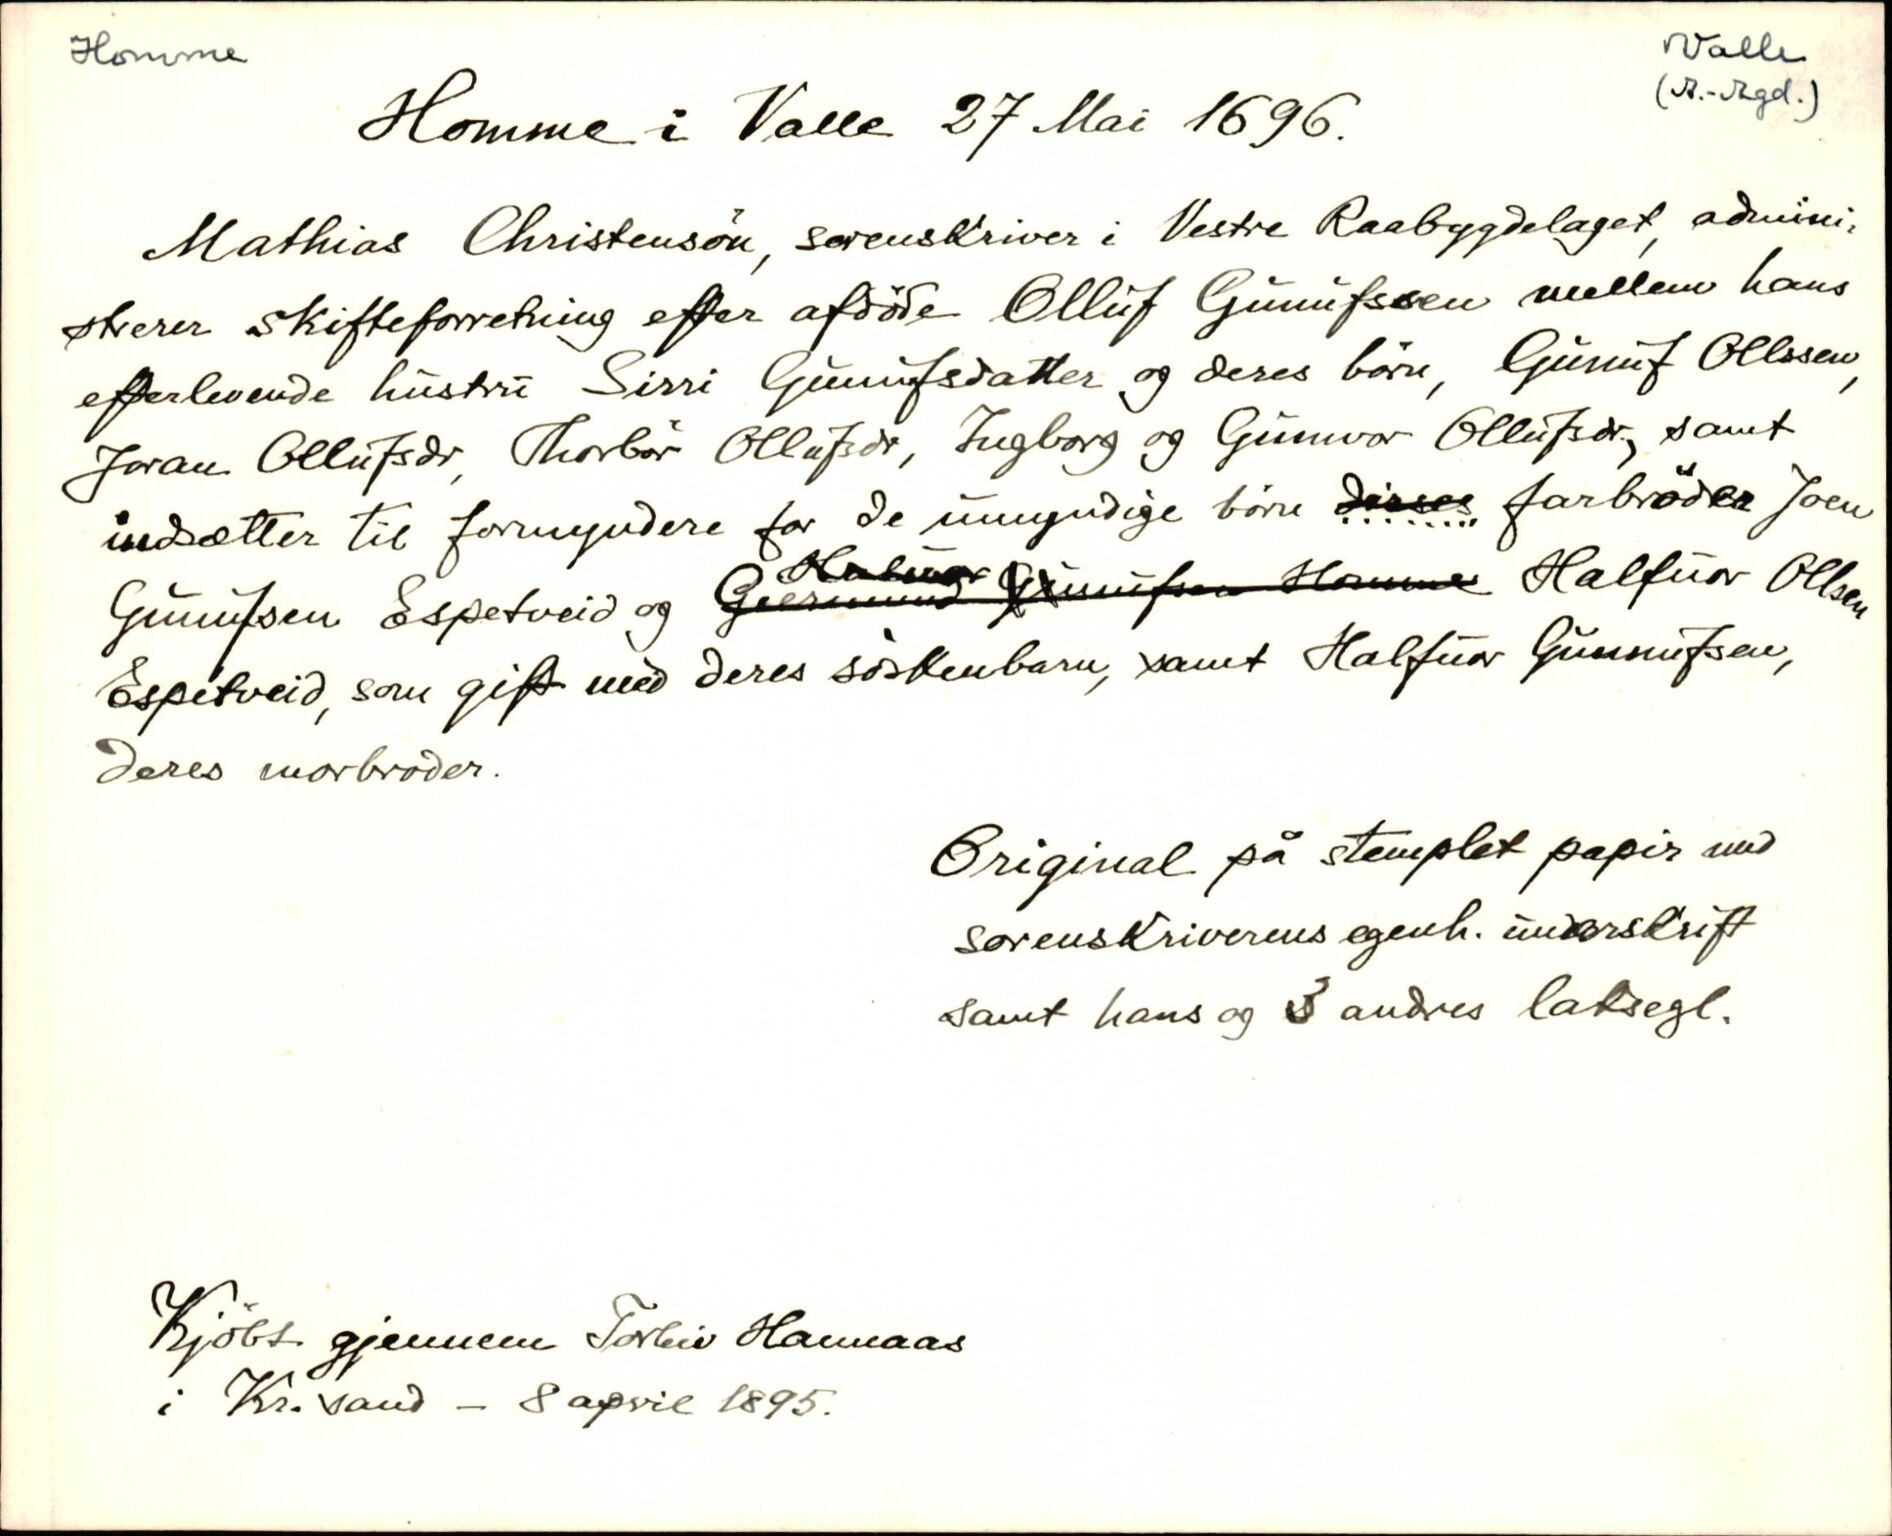 Homme
Valle
(A.-Agd.)
Homme i Valle 27 Mai 1696.
Mathias Christensön, sorenskriver i Vestre Raabygdelaget, admini-
strerer skifteforretning efter afdöde Olluf Gunufssen mellem hans
efterlevende hustru Sirri Gunufsdatter og deres börn, Gunuf Ollssen,
Joran Ollufsdr, Thorbör Ollufsdr, Ingborg og Gunvor Ollufsdr, samt
indsætter til formyndere for de umyndige börn disses farbröder Joen
Gunufsen Espetveid og Geermund Halvor Gunufsen Homme Halfuor Ollsen
Espetveid, som gift med deres söskenbarn, samt Halfuor Gunnufsen,
deres morbroder.
Original på stemplet papir med
sorenskriverens egenh. underskrift
samt hans og 3 andres laksegl.
Kjöbt gjennem Torleiv Hannaas
i Kr.sand - 8 april 1895.